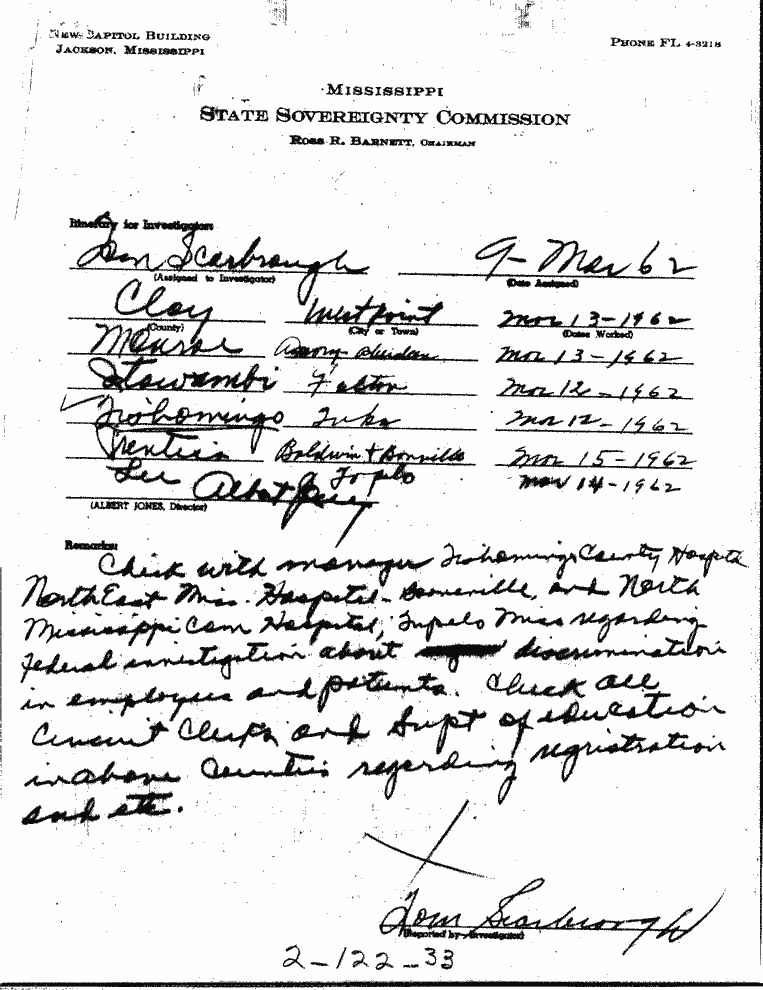 New Capitol Building
Jackson, Mississippi
Phone FL 4-3218
Mississippi
State Sovereignty Commission
Ross R. Barnett, Chairman
Itinerary for Investigator:
Tom Scarbrough 9- Mar 62
(Assigned to Investigator) (Date Assigned)
Clay West Point Mar 13-1962
(County) (City or Town) (Dates Worked)
Monroe Amory Mar 13-1962
Itawambi Fulton Mar 12-1962
Tishomingo Iuka Mar 12-1962
Prentiss Baldwin + Bonneville Mar 15-1962
Lee Tuplo Mar 14-1962
Albert Jones
(ALBERT JONES, Director)
Remarks:
Check with manager Tishomingo County Hospital
NorthEast Miss. Hospital- Booneville, and North
Mississippi Com Hospital, Tupelo Miss regarding
Federal investigation about discrimination
in employees and patients. Check all
Circuit Clerks and Supt of education
in above Counties regarding registration
and etc.
Tom Scarbrough
(Reported by Investigator)
2-122-33